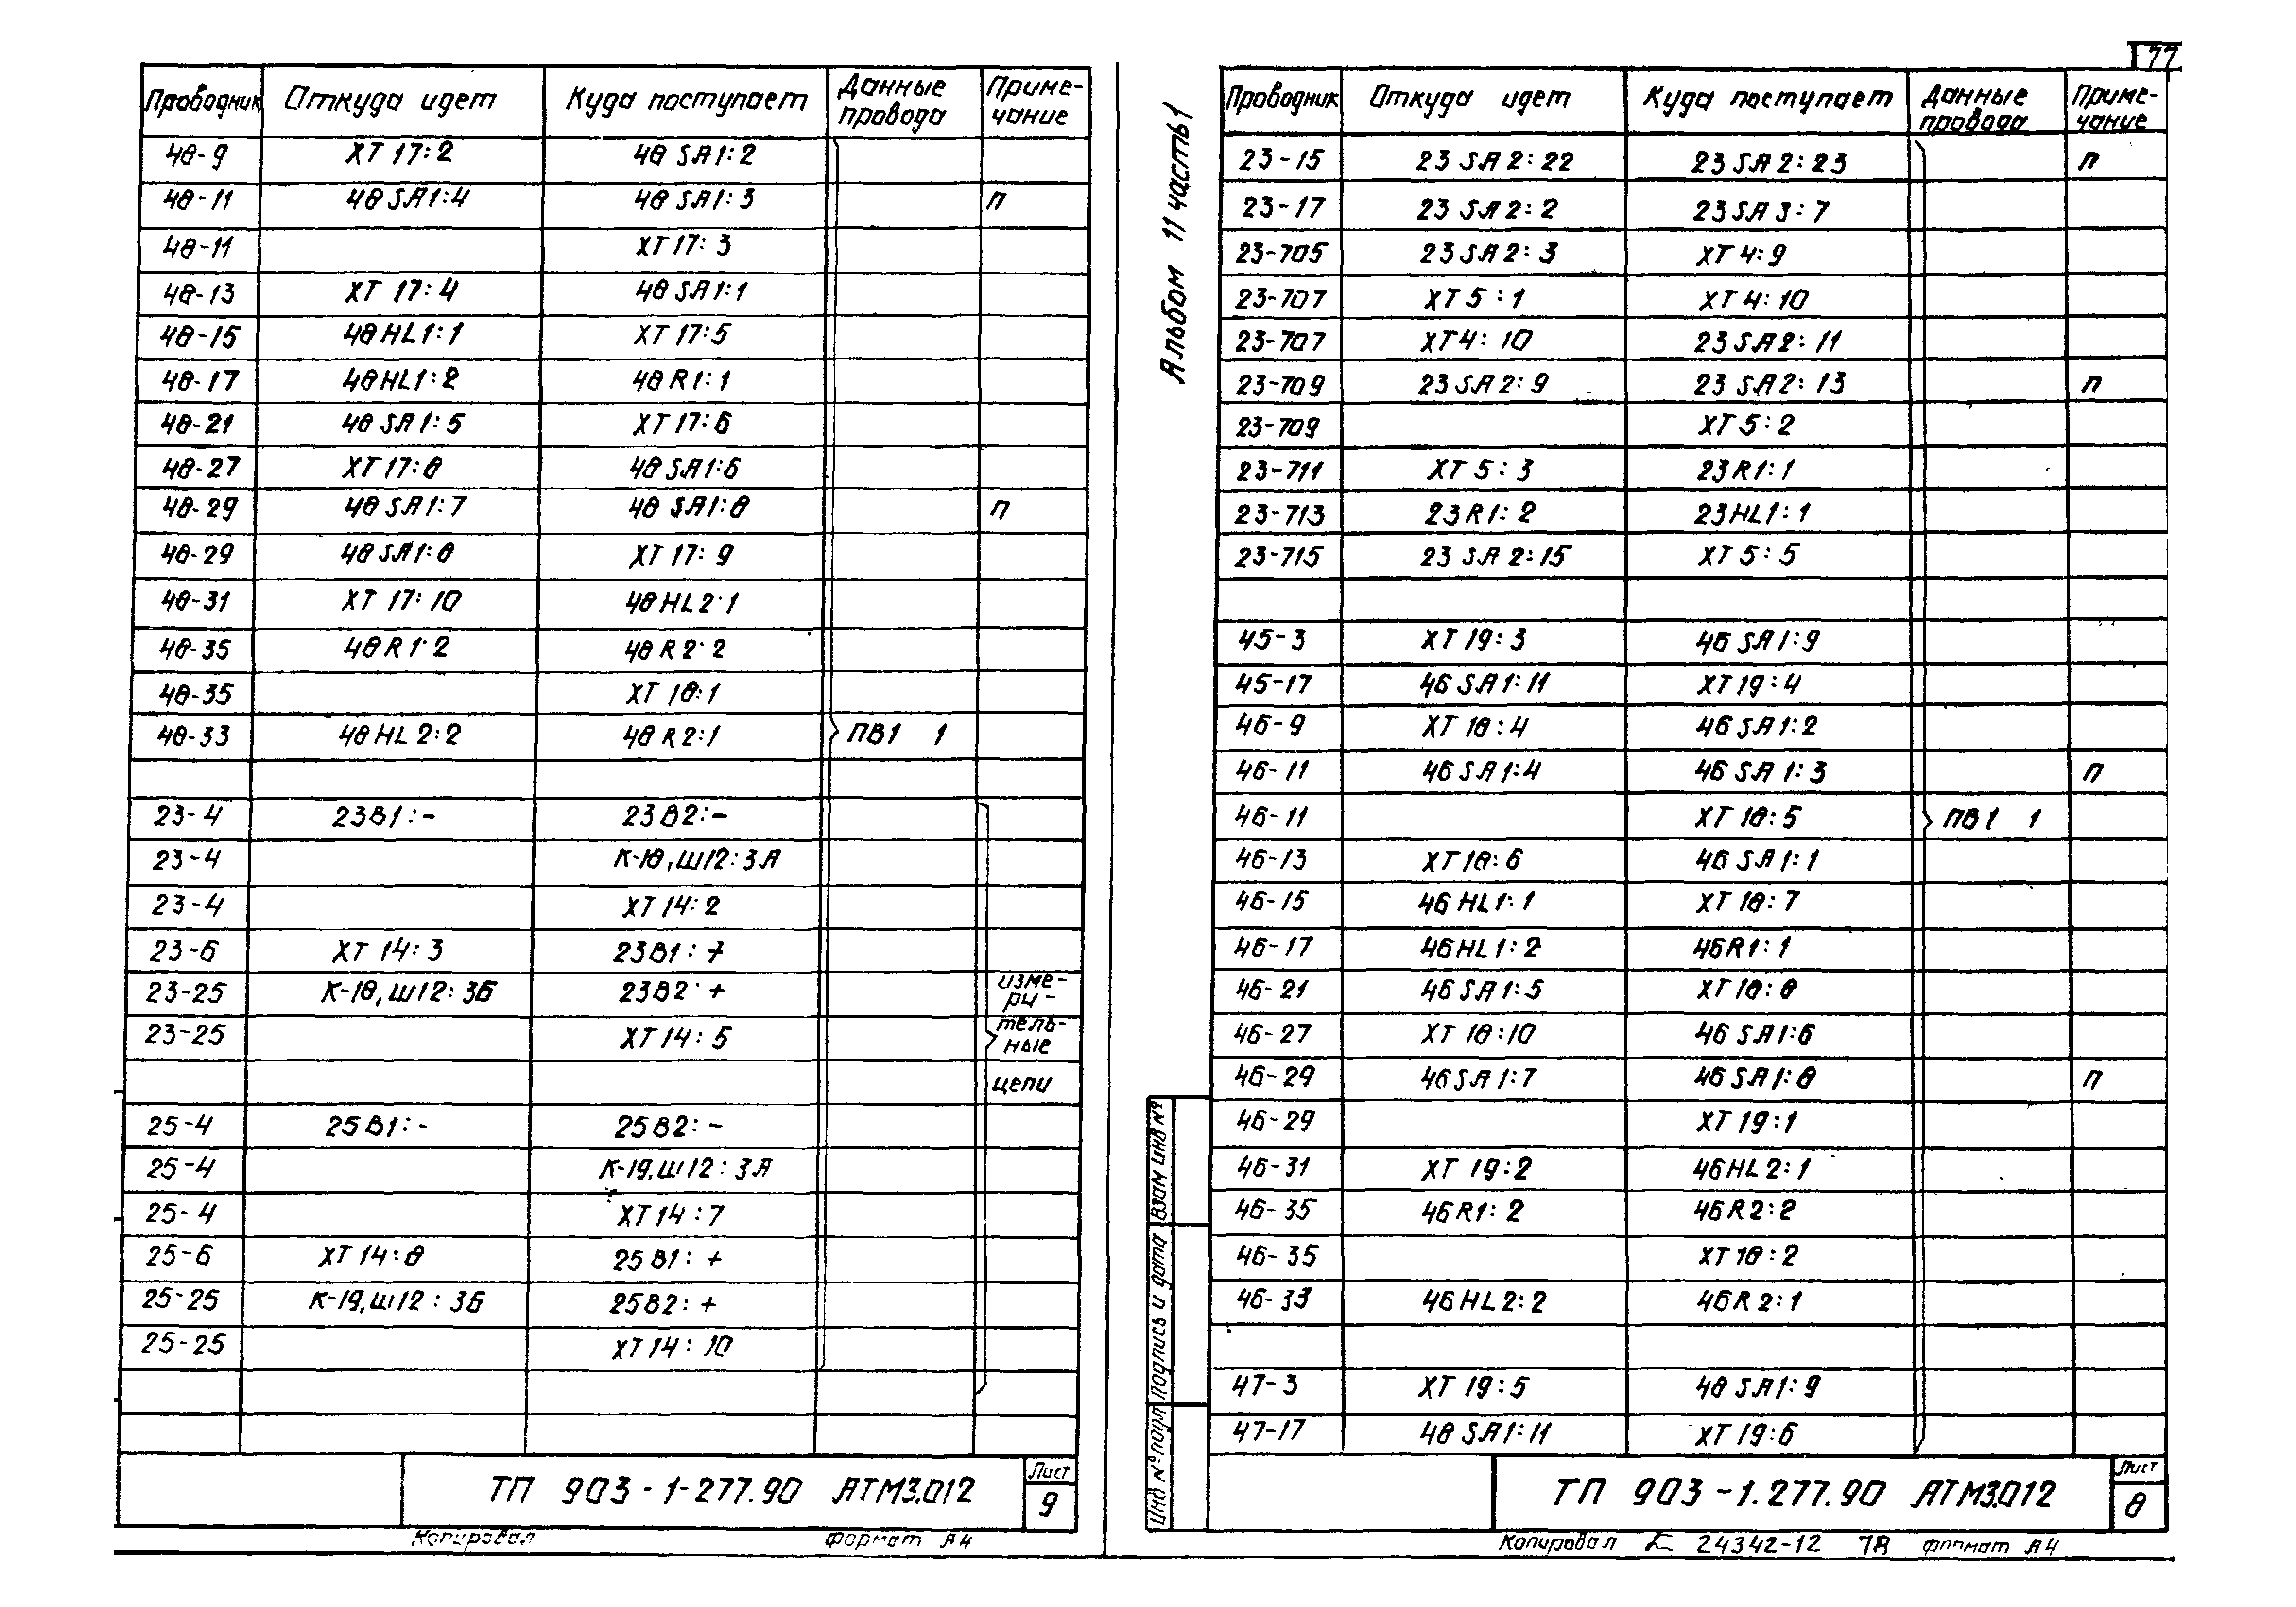 77
Проводник Откуда идет Куда поступает Данные провода Приме-чание
48-9 XT 17:2 48 SA1:2
48-11 48 SA1:4 48 SA1:3 п
48-11 XT 17:3
48-13 XT 17:4 48 SA1:1
48-15 48 HL1:1 XT 17:5
48-17 48 HL1:2 48 R1:1
48-21 48 SA1:5 XT 17:6
48-27 XT 17:8 48 SA1:6
48-29 48 SA1:7 48 SA1:8 п
48-29 48 SA1:8 XT 17:9
48-31 XT 17:10 48 HL2:1
48-35 48 R1:2 48 R2:2
48-35 XT 18:1
48-33 48 HL2:2 48 R2:1 ПВ1 1
23-4 23В1:- 23В2:-
23-4 К-18,Ш12:3А
23-4 XT 14:2
23-6 XT 14:3 23В1:+
23-25 К-18,Ш12:3Б 23В2:+ изме-ри-
23-25 XT 14:5 тель-ные
цепи
25-4 25В1:- 25В2:-
25-4 К-19,Ш12:3А
25-4 XT 14:7
25-6 XT 14:8 25В1:+
25-25 К-19,Ш12:3Б 25В2:+
25-25 XT 14:10
ТП 903-1-277.90 АТМ3.012
Лист
9
Копировал Формат А4
Альбом 11 часть1
Проводник Откуда идет Куда поступает Данные провода Приме-чание
23-15 23 SA2:22 23 SA2:23 п
23-17 23 SA2:2 23 SA3:7
23-705 23 SA2:3 XT 4:9
23-707 XT 5:1 XT 4:10
23-707 XT4:10 23 SA2:11
23-709 23 SA2:9 23 SA2:13 п
23-709 XT 5:2
23-711 XT 5:3 23R1:1
23-713 23R1:2 23HL1:1
23-715 23 SA2:15 XT 5:5
45-3 XT 19:3 46 SA1:9
45-17 46 SA1:11 XT19:4
46-9 XT 18:4 46 SA1:2
46-11 46 SA1:4 46 SA1:3 п
46-11 XT 18:5 ПВ1 1
46-13 XT18:6 46 SA1:1
46-15 46 HL1:1 XT 18:7
46-17 46HL1:2 46R1:1
46-21 46 SA1:5 XT18:8
46-27 XT 18:10 46 SA1:6
46-29 46SA1:7 46 SA1:8 п
46-29 XT 19:1
46-31 XT 19:2 46HL2:1
46-35 46R1:2 46R2:2
46-35 XT18:2
46-33 46HL2:2 46R2:1
47-3 XT 19:5 48 SA1:9
47-17 48 SA1:11 XT 19:6
Взам инв №
Подпись и дата
Инв № подл
ТП 903-1.277.90 АТМ3.012
Лист
8
Копировал 24342-12 78 формат А4